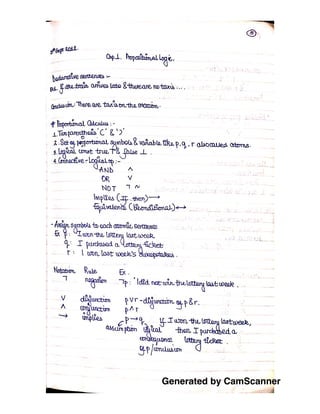 Chp 1. Propositional Logic.
Declarative sentences :-
If the train arrives late & there are no taxis ...
Conclusion There are taxis on the station.
# Propositional Calculus :-
1. Two parenthesis '(' & ')'
2. Set of propositional symbols & variable like p, q, r also called atoms.
3. Logical const true T & false ⊥.
4. Connective - Logical op :-
AND ∧
OR ∨
NOT ¬ ~
Implies (If.. then) →
Equivalence (Biconditional) ↔
- Assign symbols to each atomic sentence
Ex p : I won the lottery last week.
q : I purchased a lottery ticket
r : I won last week's sweepstakes.
Notation Rule Ex.
¬ negation ¬p : I did not win the lottery last week.
∨ disjunction p∨r - disjunction of p & r.
∧ conjunction p∧r
→ implies p→q If I won the lottery last week,
assumption logical then I purchased a
consequence lottery ticket.
of p / conclusion
Generated by CamScanner